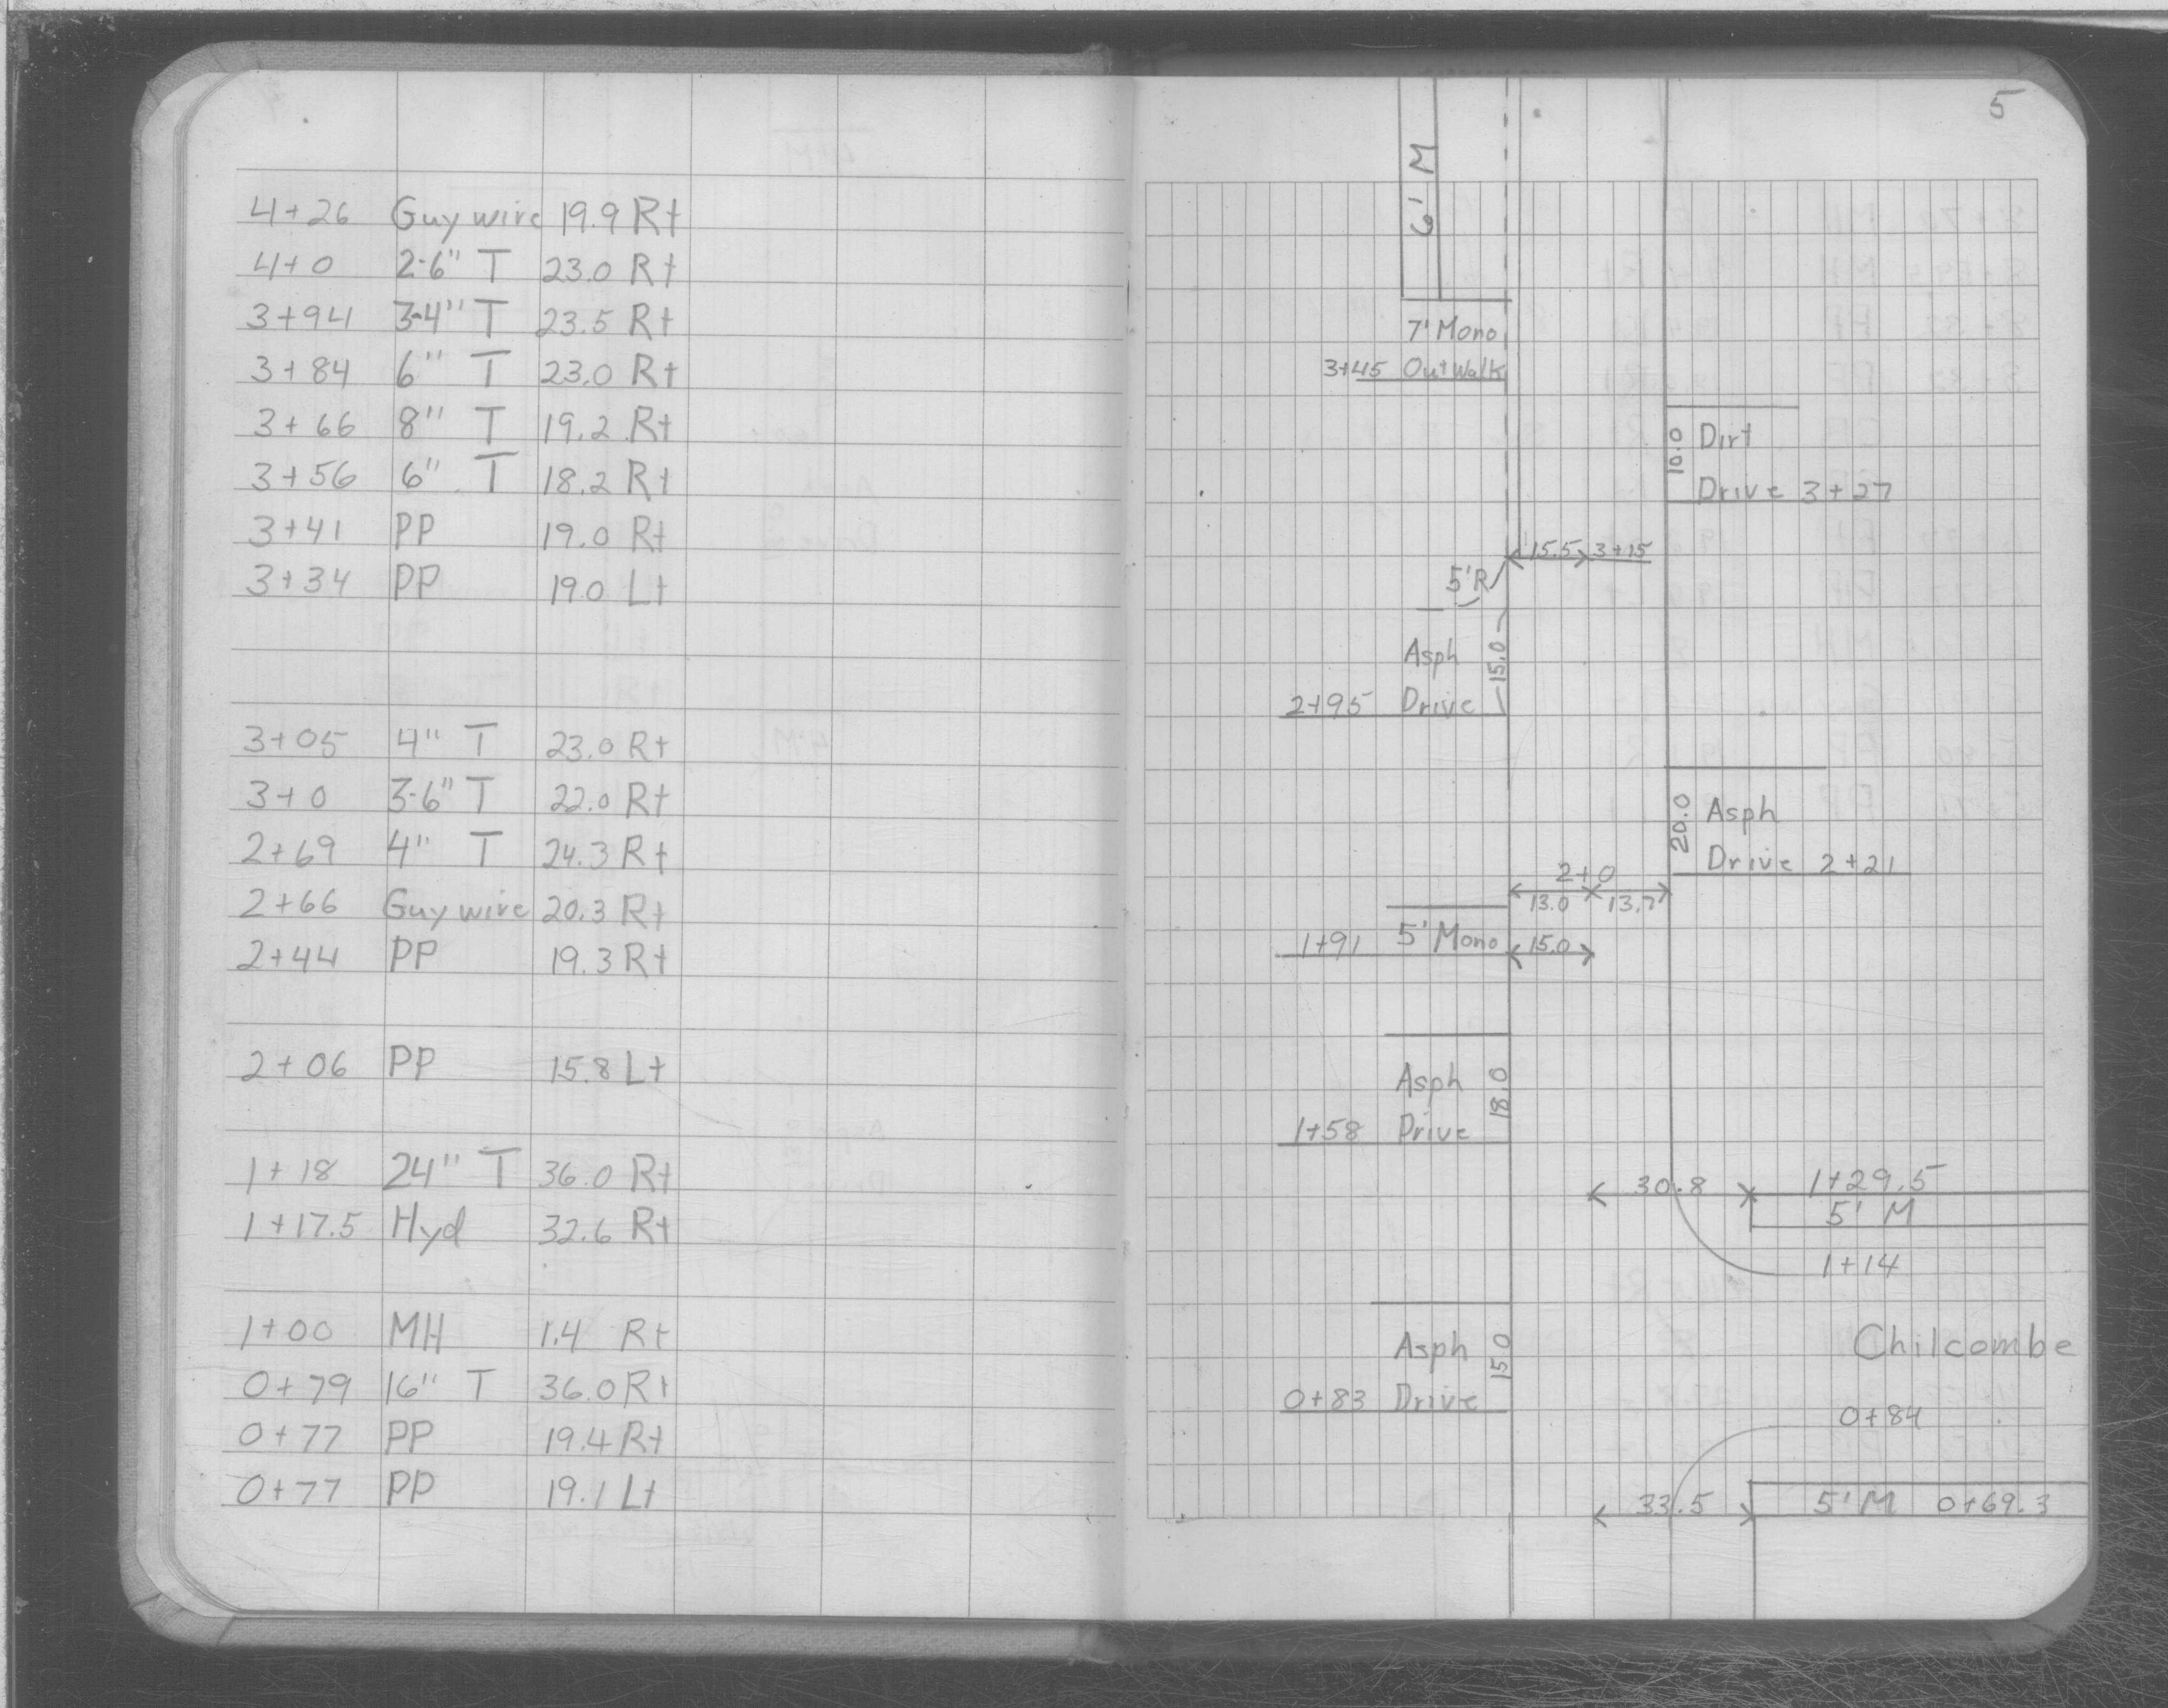 4+26 Guy wire 19.9 Rt
4+0 2-6" T 23.0 Rt
3+94 3-4" T 23.5 Rt
3+84 6" T 23.0 Rt
3+66 8" T 19.2 Rt
3+56 6" T 18.2 Rt
3+41 PP 19.0 Rt
3+34 PP 19.0 Lt
3+05 4" T 23.0 Rt
3+0 3-6" T 22.0 Rt
2+69 4" T 24.3 Rt
2+66 Guy wire 20.3 Rt
2+44 PP 19.3 Rt
2+06 PP 15.8 Lt
1+18 24" T 36.0 Rt
1+17.5 Hyd 32.6 Rt
1+00 MH 1.4 Rt
0+79 16" T 36.0 Rt
0+77 PP 19.4 Rt
0+77 PP 19.1 Lt
5
6' M
7' Mono
3+45 Out Walk
10.0 Dirt
Drive 3+27
15.5 3+15
5'R
Asph 15.0
2+95 Drive
20.0 Asph
Drive 2+21
2+0
13.0 13.7
1+91 5' Mono 15.0
Asph 18.0
1+58 Drive
30.8 1+29.5
5' M
1+14
Asph 15.0
0+83 Drive
Chilcombe
0+84
33.5 5' M 0+69.3